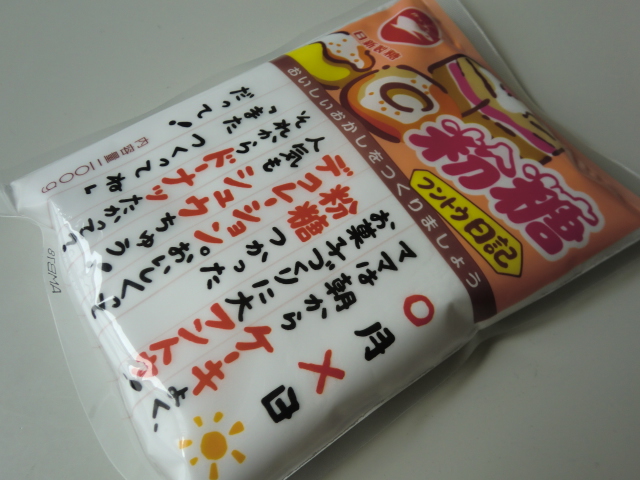 日新製糖
粉糖
フントウ日記
おいしいおかしをつくりましょう
○月×日
ママは朝から
お菓子づくりに大フントウ
粉糖つかったケーキ
デコレーション。おいしくって
人気もシュウちゅう!
それからドーナッツ
「またつくってね」
だって!
内容量=100g